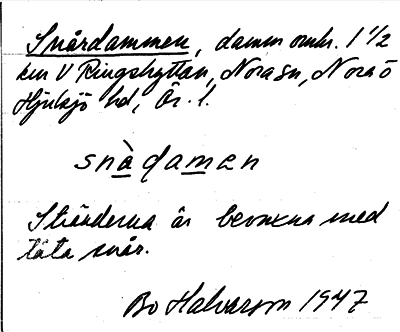 Snårdammen, damm omkr. 1 1/2
km V Ringshyttan, Nora sn, Nora o
Hjulsjö hd, Ör. l.
snàdamen
Stränderna är bevuxna med
täta snår.
Bo Halvarson 1947